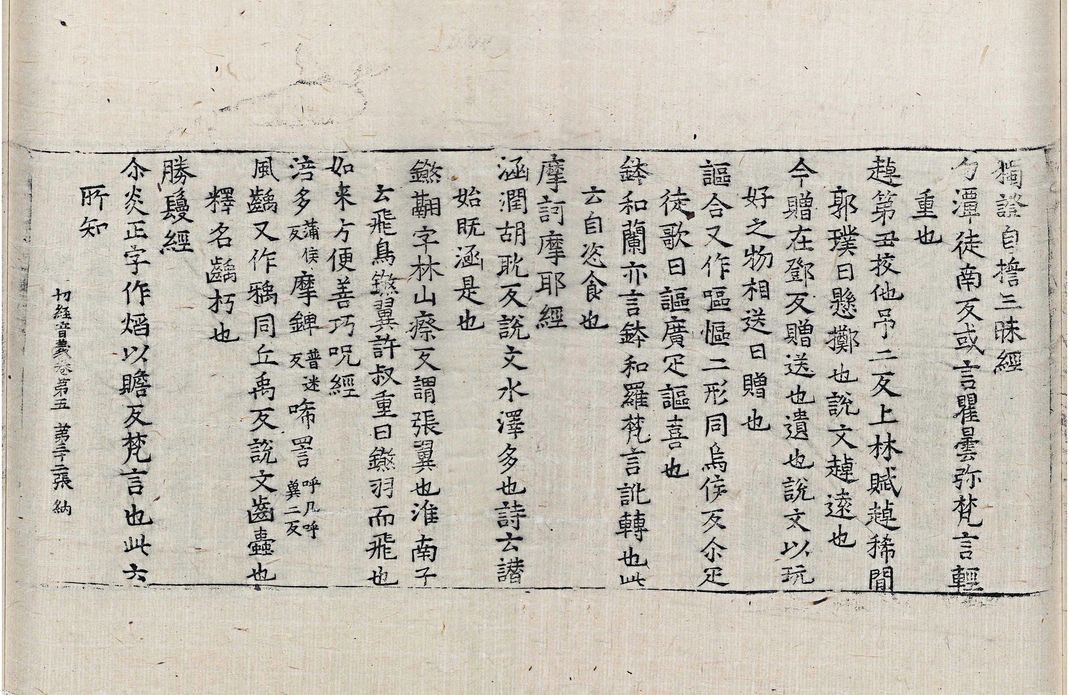 獨證自擔三昧經
勾潭徒南反或言瞿曇弥梵言輕
重也
趠第丑挍他吊二反上林賦趠稀閒
郭璞曰懸擲也說文趠逺也
今贈在鄧反贈送也遺也說文以玩
好之物相送曰贈也
謳合又作嘔慪二形同烏侯反尒疋
徒歌曰謳廣疋謳喜也
鉢和蘭亦言鉢和羅梵言訛轉也此
云自恣食也
摩訶摩耶經
涵潤胡躭反說文水澤多也詩云譖
始旣涵是也
鐓翮字林山療反謂張翼也淮南子
云飛鳥鎩翼許叔重曰鐓羽而飛也
如来方便善巧呪經
涪多蒲侯反摩錍普迷反唏詈呼几呼兾二反
風齲又作鴉同丘禹反說文齒蠧也
釋名齲朽也
勝鬘經
尒炎正字作焰以贍反梵言也此云
所知
切經音義卷第五 第三十二張 納